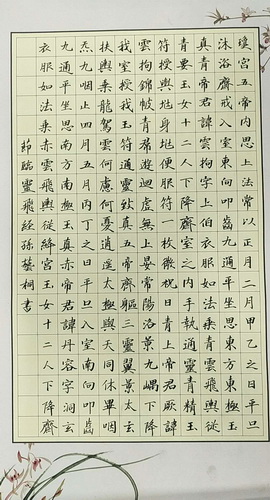 瓊宮五帝内思上法常以正月二月甲乙之日平旦
沐浴齋戒入室東向叩齒九通平坐思東方東極玉
真青帝君諱雲拘字上伯衣服如法乘青雲飛輿從
青要玉女十二人下降齋室之内手執通靈青精玉
符授與兆身兆便服符一枚微祝曰青上帝君厥諱
雲拘錦帔青帬遊迴虛無上晏常陽洛景九嵎下降
我室授我玉符通靈致真五帝齊軀三靈翼景太玄
扶輿乘龍駕雲何慮何憂逍遙太極與天同休畢咽
炁九咽止四月五月丙丁之日平旦入室南向叩齒
九通平坐思南方南極玉真赤帝君諱丹容字洞玄
衣服如法乘赤雲飛輿從絳宮玉女十二人下降齋
節臨靈飛經孫藝桐書